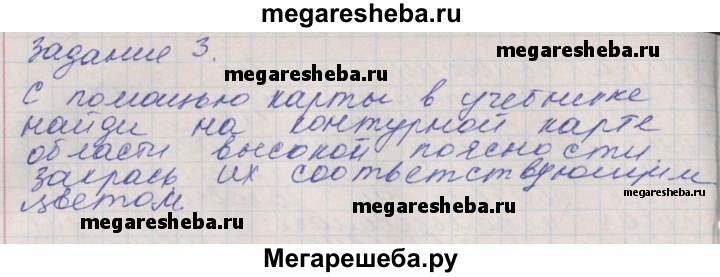 megaresheba.ru
Задание 3.
megaresheba.ru
megaresheba.ru
С помощью карты в учебнике
найди на контурной карте
области высокой поясности
закрась их соответствующим
megaresheba.ru
цветом
megaresheba.ru
megaresheba.ru
Мегарешеба.ру